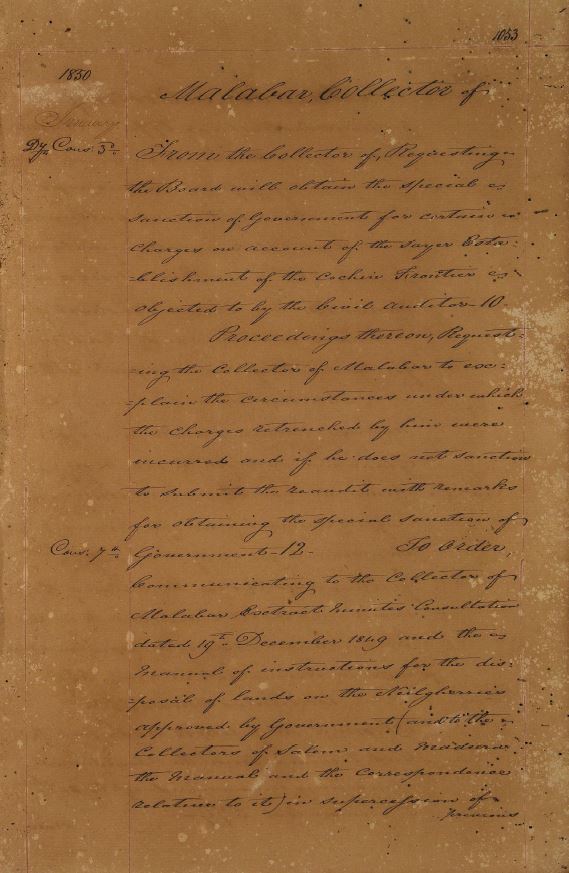 1053
1850
Malabar, Collector of
January
Dy. Cons. 3d.
From the Collector of, Requesting
the Board will obtain the special
sanction of Government for certain
charges on account of the Sayer Esta:
:blishment of the Cochin Frontier
objected to by the Civil Auditor - 10 -
Proceedings thereon, Request:
:ing the Collector of Malabar to ex:
:plain the circumstances under which
the charges retrenched by him were
incurred and if he does not sanction
to submit the reaudit with remarks
for obtaining the special sanction of
Cons. 7th. Government - 12 - To Order,
Communicating to the Collector of
Malabar Extract Minutes Consultation
dated 19th. December 1849 and the
Manual of instructions for the dis:
:posal of lands on the Neilgherries
approved by Government (and to the
Collectors of Salem and Madura
the Manual and the Correspondence
relative to it) in supercession of
previous